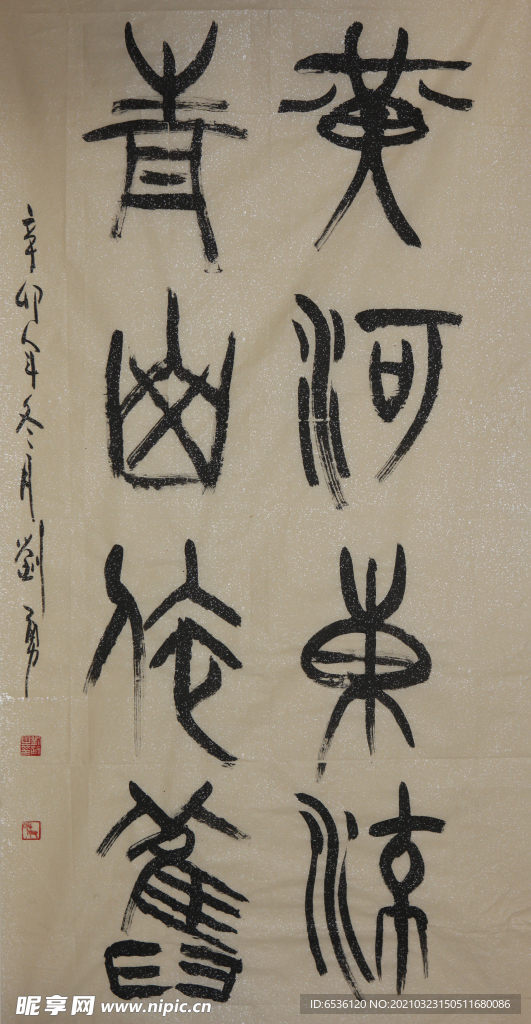 黄河東流
青山依舊
辛卯年冬月劉勇
昵享网 www.nipic.cn
ID:6536120 NO:20210323150511680086